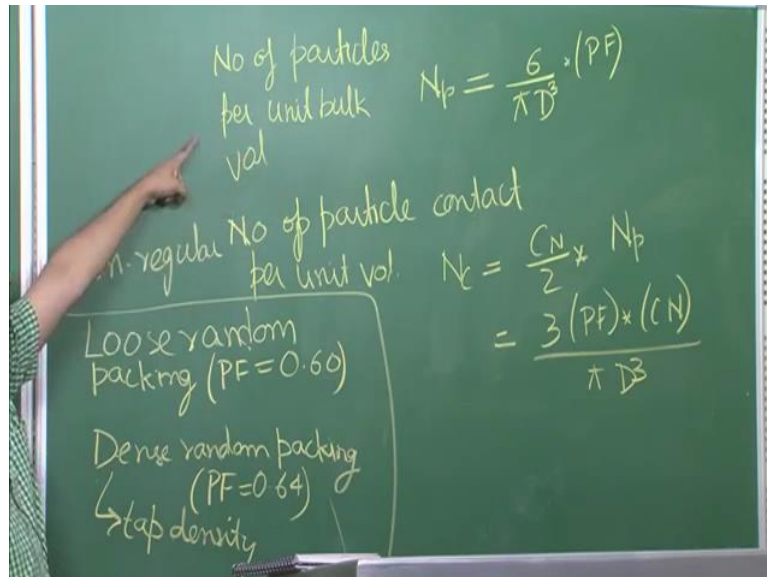 No of particles
per unit bulk
vol
Np = 6/πD³ * (PF)
n-regular No of particle contact
per unit vol.
Nc = CN/2 * Np
= 3(PF)*(CN)/πD³
Loose random
packing (PF=0.60)
Dense random packing
(PF=0.64)
↳tap density